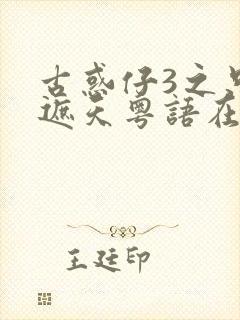 古惑仔3之只
遮天粵語在
王廷印